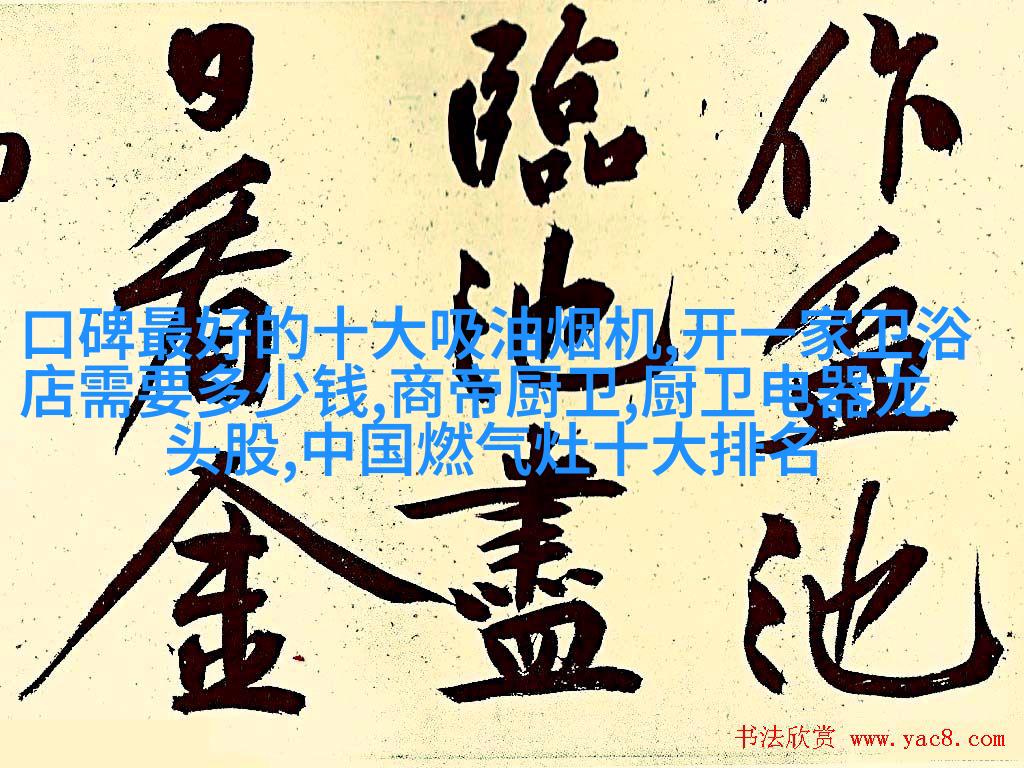 作盆池
臨池盡
日看金
口碑最好的十大吸油烟机,开一家卫浴
店需要多少钱,商帝厨卫,厨卫电器龙
头股,中国燃气灶十大排名
书法欣赏 www.yac8.com